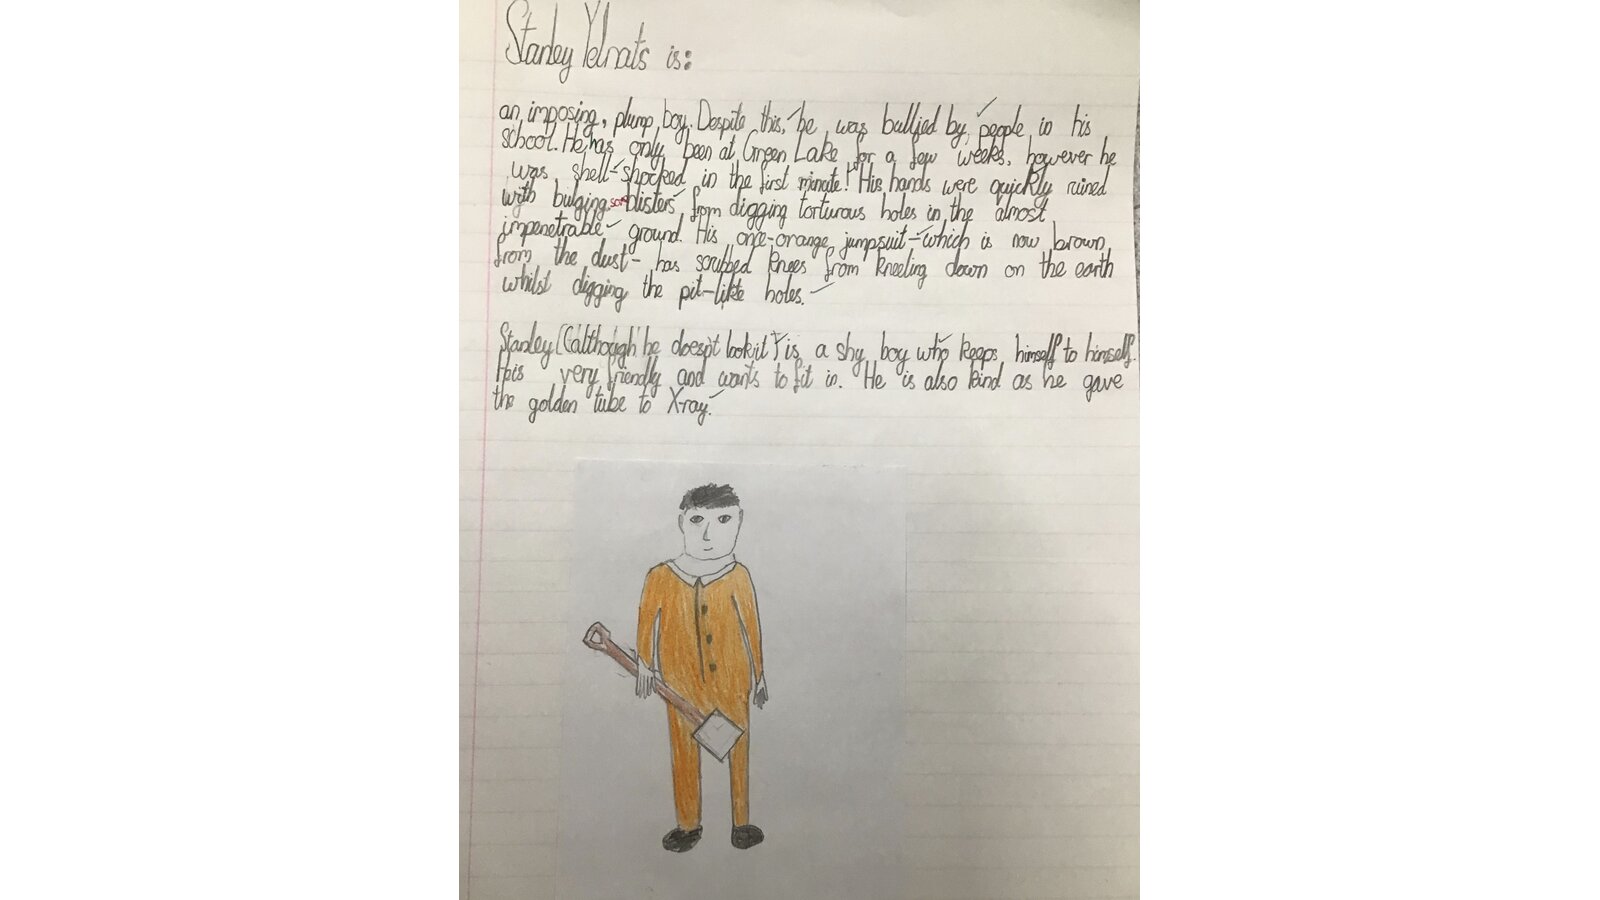 Stanley Yelnats is:
an imposing, plump boy. Despite this, he was bullied by people in his
school. He has only been at Green Lake for a few weeks, however he
was shell-shocked in the first minute! His hands were quickly ruined
with bulging sore blisters from digging torturous holes in the almost
impenetrable ground. His once-orange jumpsuit - which is now brown
from the dust - has scrubbed knees from kneeling down on the earth
whilst digging the pit-like holes.
Stanley (although he doesn't look it) is a shy boy who keeps himself to himself.
He is very friendly and wants to fit in. He is also kind as he gave
the golden tube to X-ray.